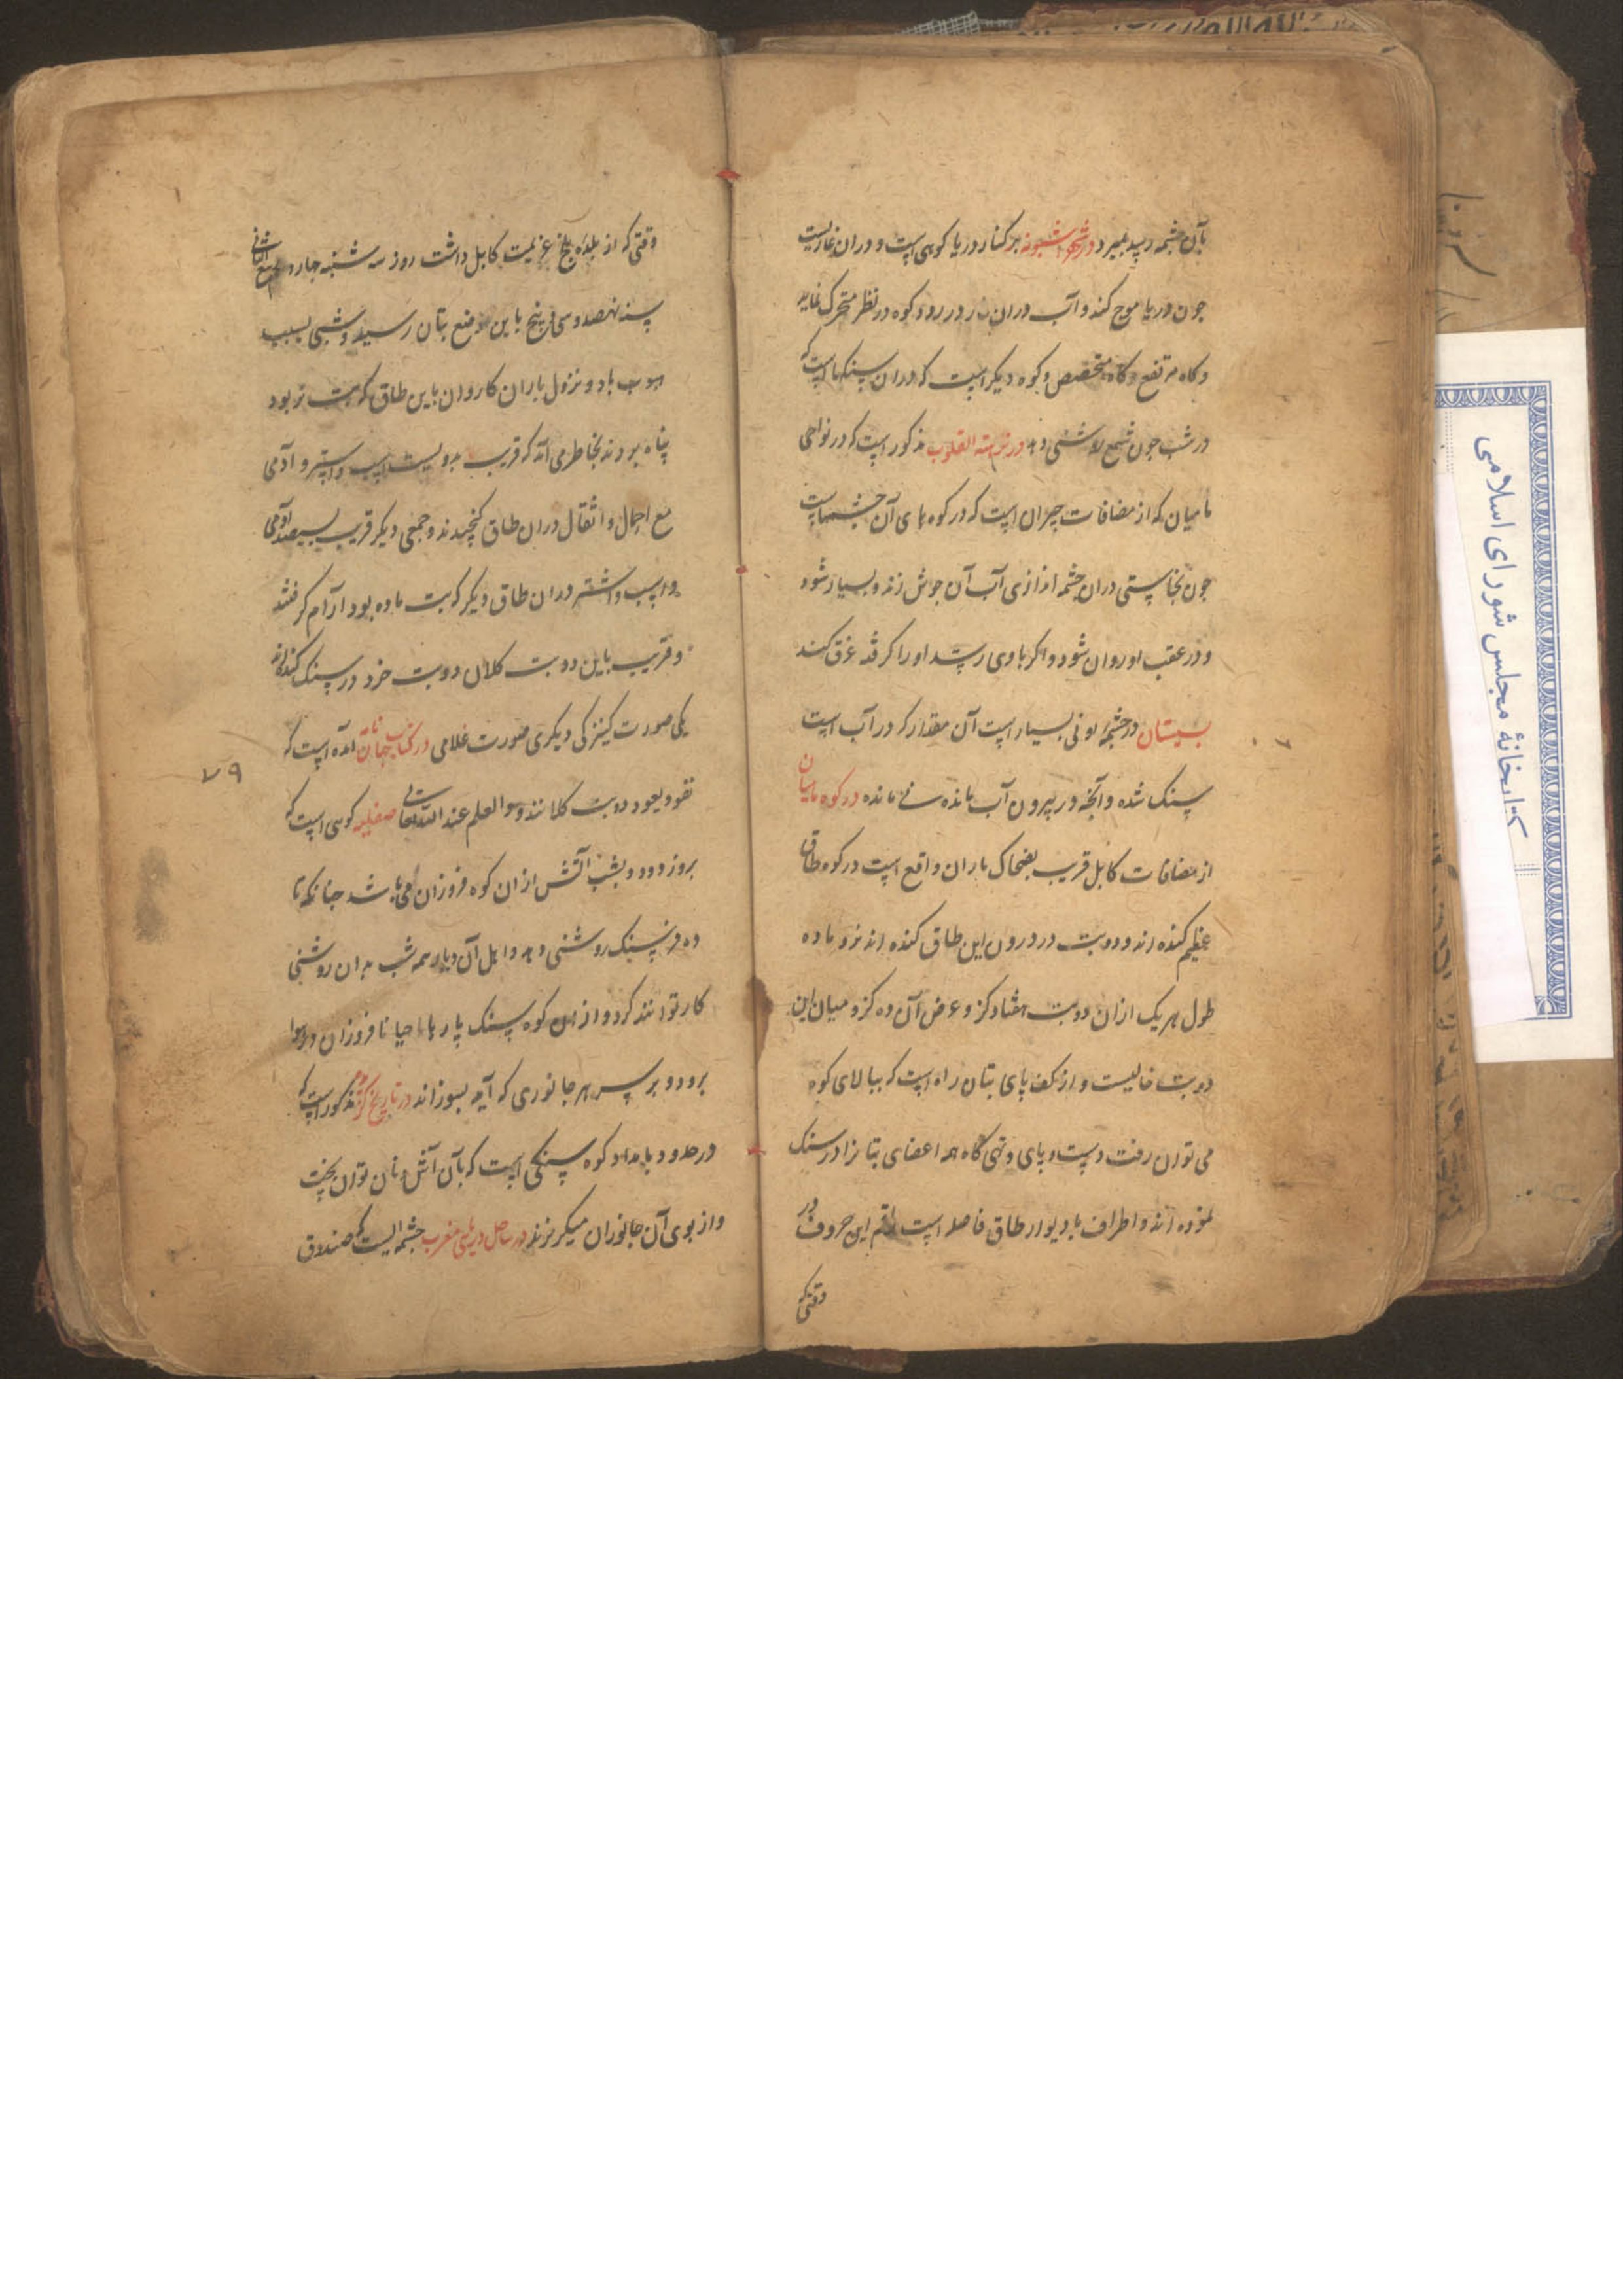 بآن چشمه رسید بمیرد در شهر اشبونه بر کنار دریا کوهی است و دران غاریست
چون دریا موج کند و آب دران غار در رود کوه در نظر متحرک نماید
و کاه مرتفع و کاه منخفض و کوه دیگر است که دران سنگهاست که
در شب چون شمع روشنی دهد در نزهته القلوب مذکور است که در نواحی
نامیان که از مضافات است که در کوه های آن چشمه است
چون نجاستی دران چشمه اندازی آب آن جوش زند و بسیار شود
و در عقب او روان شود و اگر باوی رسد او را گرفته غرق کند
سیستان در چشمهٔ نی بسیار است آن مقدار که در آب است
سنک شده و آنچه در بیرون آب مانده نی مانده در کوه بامیان
از مضافات کابل قریب بضحاک ماران واقع است در کوه طاق
عظیم کنده اند و دو بت در درون این طاق کنده اند نر و ماده
طول هر یک ازان دو بت هفتاد کز و عرض آن ده کز و میان این
دو بت خالیست و از کف پای بتان راه است که ببالای کوه
می توان رفت دست و پای و تهی گاه همه اعضای بتانرا در سنک
نموده اند و اطراف با دیوار طاق فاصله است راقم این حروف در
وقتی که
وقتی که از بلدهٔ بلخ عزیمت کابل داشت روز سه شنبه چهارم ربیع الثانی
سنه نهصد و سی و پنج باین موضع بتان رسید و شبی بسبب
هبوب باد و نزول باران کاروان باین طاق که بت نر بود
پناه بردند بخاطر می آید که قریب بدویست اسب و استر و آدمی
مع احمال و اثقال دران طاق گنجیدند و جمعی دیگر قریب بسیصد آدمی
و اسب و اشتر دران طاق دیگر که بت ماده بود آرام گرفتند
و قریب باین دو بت کلان دو بت خرد در سنک کنده اند
یکی صورت کنیزکی دیگری صورت غلامی در کتاب آمده است که
یغوث و یعوق دو بت کلانند و العلم عند الله تعالی صقلیه کوهی است که
بروز دود و بشب آتش ازان کوه فروزان می باشد چنانکه تا
ده فرسنک روشنی دهد و اهل آن دیار همه شب بدان روشنی
کار توانند کرد و ازین کوه سنک پارها احیانا فروزان در هوا
برود و بر سر هر جانوری که آید بسوزاند در تاریخ گزیده مذکور است که
در حدود بامداد کوه سنکی است که بآن آتش نان توان پخت
و از بوی آن جانوران میگریزند در ساحل دریای مغرب چشمه ایست که صندوق
۷۹
کتابخانهٔ مجلس شورای اسلامی